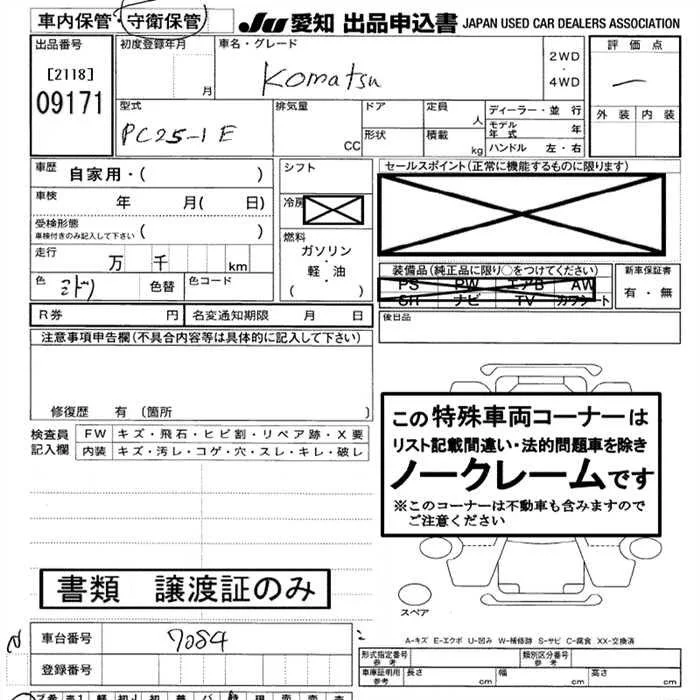 車内保管・守衛保管
JU 愛知 出品申込書 JAPAN USED CAR DEALERS ASSOCIATION
出品番号
[2118]
09171
初度登録年月
月
車名・グレード
Komatsu
2WD
・
4WD
評価点
ー
外装 内装
型式
PC25-1E
排気量
CC
ドア
形状
定員
人
積載
kg
ディーラー・並行
モデル年式 年
ハンドル 左・右
車歴 自家用・( )
車検 年 月( 日)
受検形態
車検付きのみ記入して下さい ( )
走行 万 千 km
色 ミドリ 色替 色コード
シフト
冷房
燃料
ガソリン
・
軽・油
( )
セールスポイント(正常に機能するものに限ります)
装備品(純正品に限り○をつけてください)
PS PW エアB AW
SR ナビ TV カワシート
新車保証書
有・無
R券 円 名変通知期限 月 日
後日品
注意事項申告欄(不具合内容等は具体的に記入して下さい)
修復歴 有 [箇所 ]
検査員
記入欄
FW キズ・飛石・ヒビ割・リペア跡・X要
内装 キズ・汚レ・コゲ・穴・スレ・キレ・破レ
この特殊車両コーナーは
リスト記載間違い・法的問題車を除き
ノークレームです
※このコーナーは不動車も含みますので
ご注意ください
書類 譲渡証のみ
スペア
A-キズ E-エクボ U-凹み W-補修跡 S-サビ C-腐食 XX-交換済
車台番号 7084
登録番号
形式指定番号
参考
類別区分番号
参考
車庫証明用
参考
長さ cm 幅 cm 高さ cm